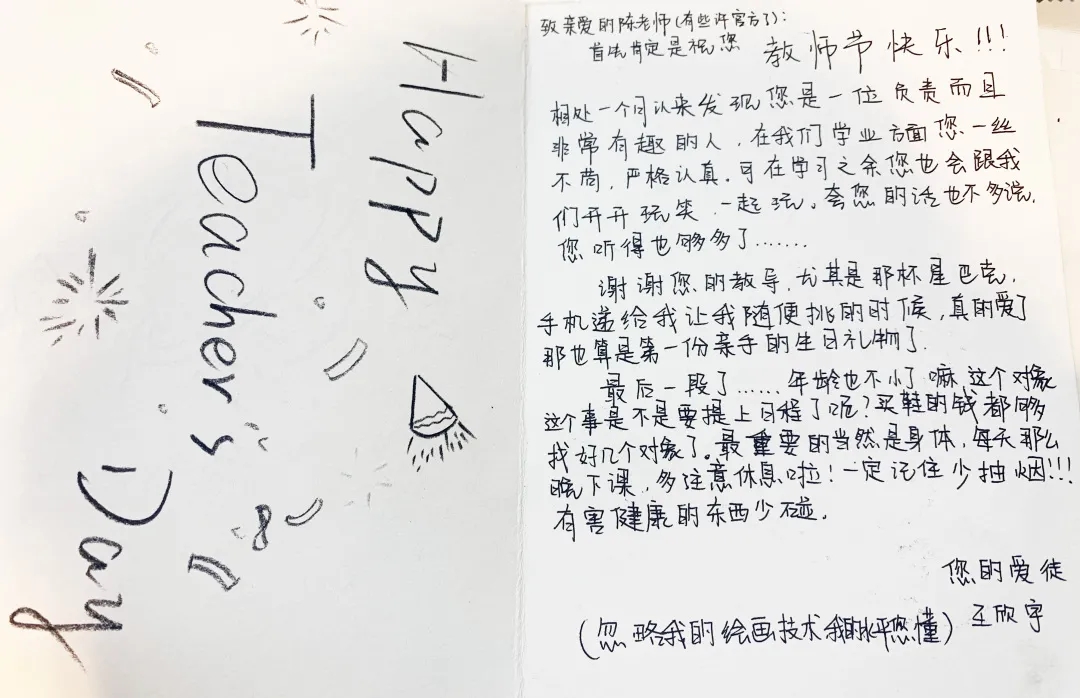 Happy
Teacher's
Day
致亲爱的陈老师(有些许官方了):
首先肯定是祝您 教师节快乐!!!
相处一个月以来发现您是一位负责而且
非常有趣的人,在我们学业方面您一丝
不苟,严格认真。可在学习之余您也会跟我
们开开玩笑,一起玩。夸您的话也不多说,
您听得也够多了.......
谢谢您的教导,尤其是那杯星巴克,
手机递给我让我随便挑的时候,真的爱了
那也算是第一份亲手的生日礼物了.
最后一段了......年龄也不小了嘛,这个对象
这个事是不是要提上日程了呢?买鞋的钱都够
找好几个对象了。最重要的当然是身体,每天那么
晚下课,多注意休息啦!一定记住少抽烟!!!
有害健康的东西少碰。
您的爱徒
王欣宇
(忽略我的绘画技术我的水平您懂)